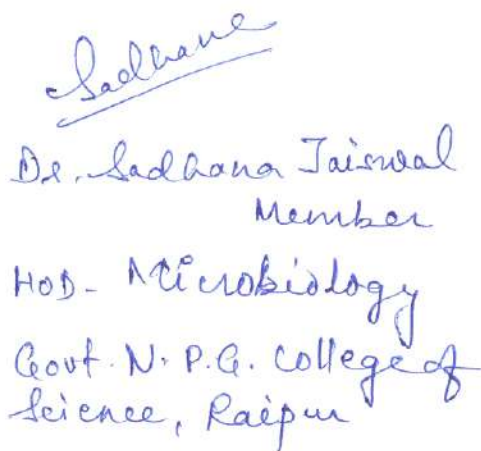 Sadhana
Dr. Sadhana Jaiswal
Member
HoD- Microbiology
Govt. N. P.G. College of
Science, Raipur